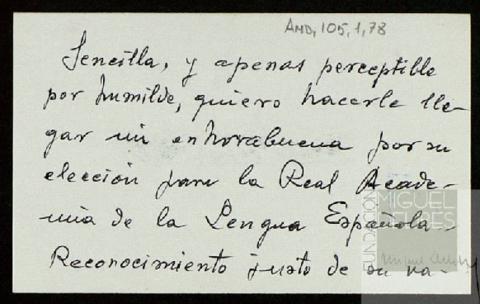 AMD, 105, 1, 78
Sencilla, y apenas perceptible
por humilde, quiero hacerle lle-
gar mi enhorabuena por su
elección para la Real Acade-
mia de la Lengua Española.
Reconocimiento justo de su va-
FUNDACIÓN
MIGUEL
DELIBES